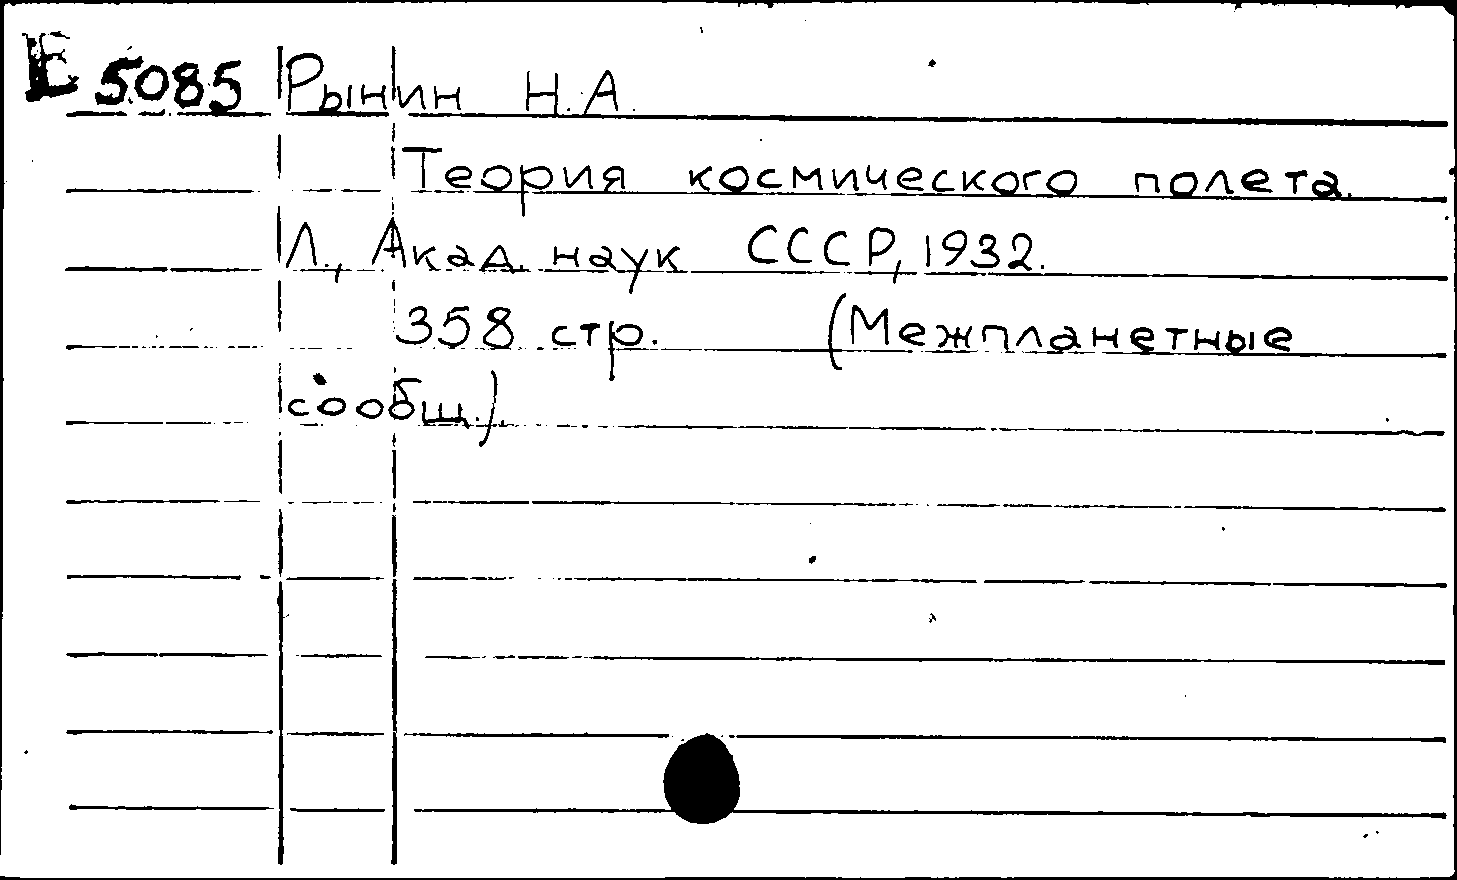 Е 5085 Рынин Н.А.
Теория космического полета.
Л., Акад. наук СССР, 1932.
358 стр. (Межпланетные
сообщ.).